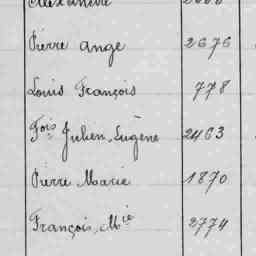 Pierre ange 2676
Louis François 778
Fois Julien, Eugène 2463
Pierre Marie 1870
François, Mie 2774